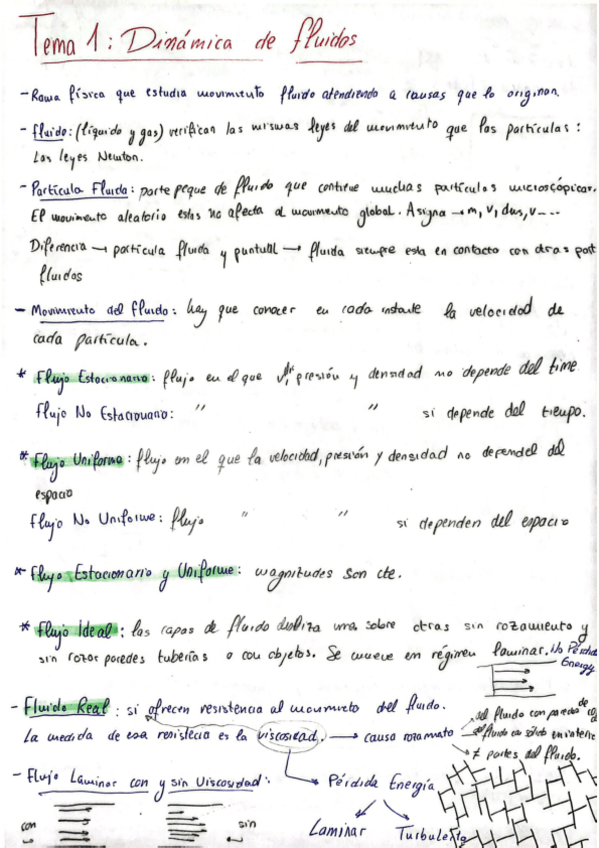 Tema 1: Dinámica de fluidos
- Rama física que estudia movimiento fluido atendiendo a causas que lo originan.
- Fluido: (líquido y gas) verifican las mismas leyes del movimiento que las partículas:
Las leyes Newton.
- Partícula Fluida: parte peque de fluido que contiene muchas partículas microscópicas.
El movimiento aleatorio estas no afecta al movimiento global. Asigna → m, v, dens, v---
Diferencia → partícula fluida y puntutal → fluida siempre esta en contacto con otras part
fluidas
- Movimiento del fluido: hay que conocer en cada instante la velocidad de
cada partícula.
* Flujo Estacionario: flujo en el que presión y densidad no depende del time
Flujo No Estacionario: " " si depende del tiempo.
* Flujo Uniforme: flujo en el que la velocidad, presión y densidad no depended del
espacio
Flujo No Uniforme: flujo " " si dependen del espacio
* Flujo Estacionario y Uniforme: magnitudes son cte.
* Flujo Ideal: las capas de fluido desliza unas sobre otras sin rozamiento y
sin rozar paredes tuberías o con objetos. Se mueve en régimen laminar. No Pérdida
Energy
- Fluido Real: si ofrecen resistencia al movimiento del fluido.
La medida de esa resistecia es la viscosidad. → causa rozamiento
del fluido con paredes de
del fluido con sólido en interior
≠ partes del fluido.
- Flujo Laminar con y sin Viscosidad: Pérdida Energía
con sin Laminar Turbulento